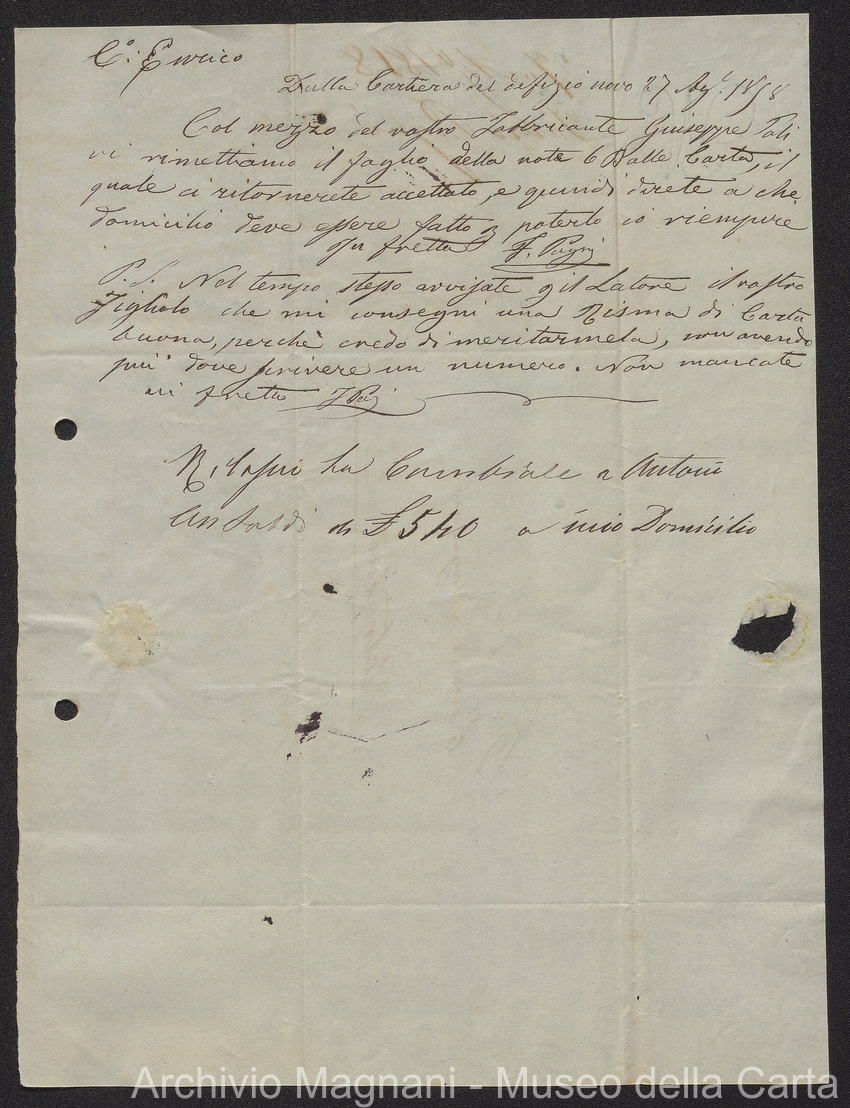 Cº. Enrico
Dalla Cartiera del defizio novo 27 Ag. 1858
Col mezzo del vostro Fabbricante Giuseppe Tali
vi rimettiamo il foglio della note 6 Balle Carta, il
quale ci ritornerete accettato, e quindi direte a che
domicilio deve essere fatto p poterlo io riempire
In fretta F. Pagni
P. S. Nel tempo stesso avvisate p il Latore il vostro
Figliolo che mi consegni una Risma di Carta
buona, perchè credo di meritarmela, non avendo
più dove scrivere un numero. Non mancate
in fretta
R. la Cambiale a Antonio
Ansaldi di £ 540 a mio Domicilio
Archivio Magnani - Museo della Carta